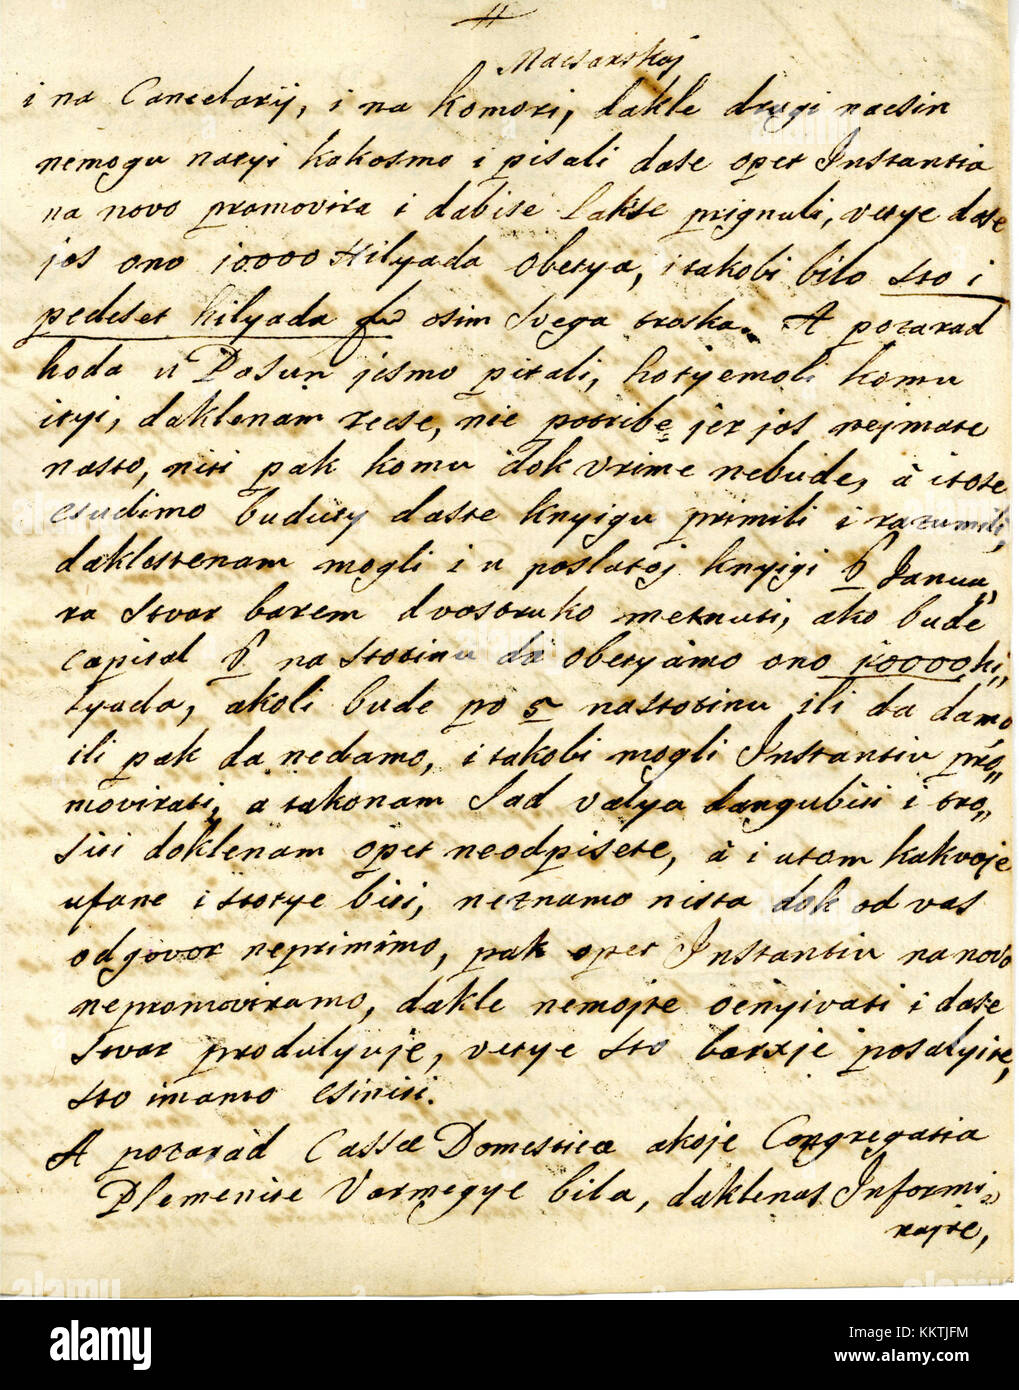 Macsarskoj
i na Cancelarij, i na Komori, dakle drugi nacsin
nemogu naryi kakosmo i pisali dase oper Instantia
na novo promovira i dabise lakse prignuli, verye dase
jos ono 10000 Hilyada oberya, i takobi bilo sto i
pedeset hilyada osim Svega troska. A pozarad
koda u Dasun jesmo pitali, horyemoli komu
iryi, daklenam recse, nie potribe jer jos nejmate
nasto, niti pak komu dok vrime nebude, à itote
csudimo budury daste knyigu primili i razumili,
daklestenam mogli i u poslatoj knyigi 6 Janua„
ra Stvar barem dvostruko metnuti, ako bude
Capital 6 na stotinu da oberyàmo ono 10000 hi„
lyada, akoli bude po 5 nastotinu ili da damo
ili pak da nedamo, i takobi mogli Instantiu pro„
movirati, a takonam Sad valya dangubiti i tro„
siti doklenam oper neodpisete, à i utom kakvoje
ufane i storye biti, neznamo nista dok od vas
odgovor neprimimo, pak oper Instantiu na novo
nepromoviramo, dakle nemojte ocinyivati i dase
Stvar produlyuje, verye sto barxje posalyite,
sto imamo csiniti.
A pozarad Cassæ Domesticæ akoje Congregatia
Plemenite Varmegye bila, daklenas Informi„
rajte,
alamy
Image ID: KKTJFM
www.alamy.com